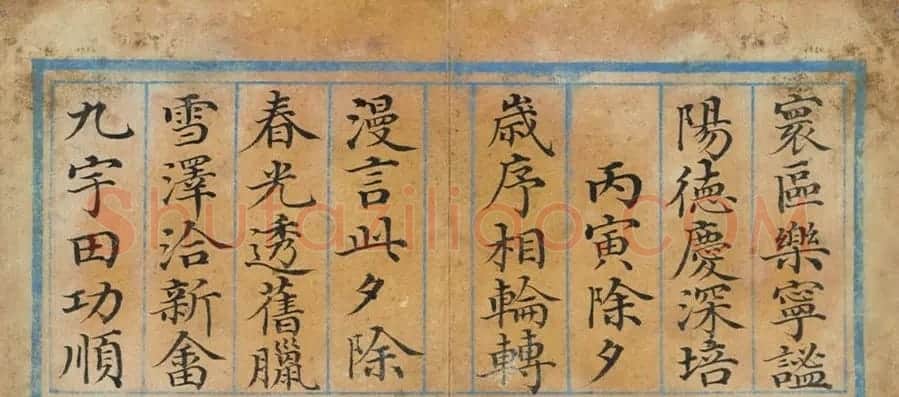 寰區樂寧謐
陽德慶深培
丙寅除夕
歲序相輪轉
漫言此夕除
春光透舊臘
雪澤洽新畬
九宇田功順
Shufaziliao.COM